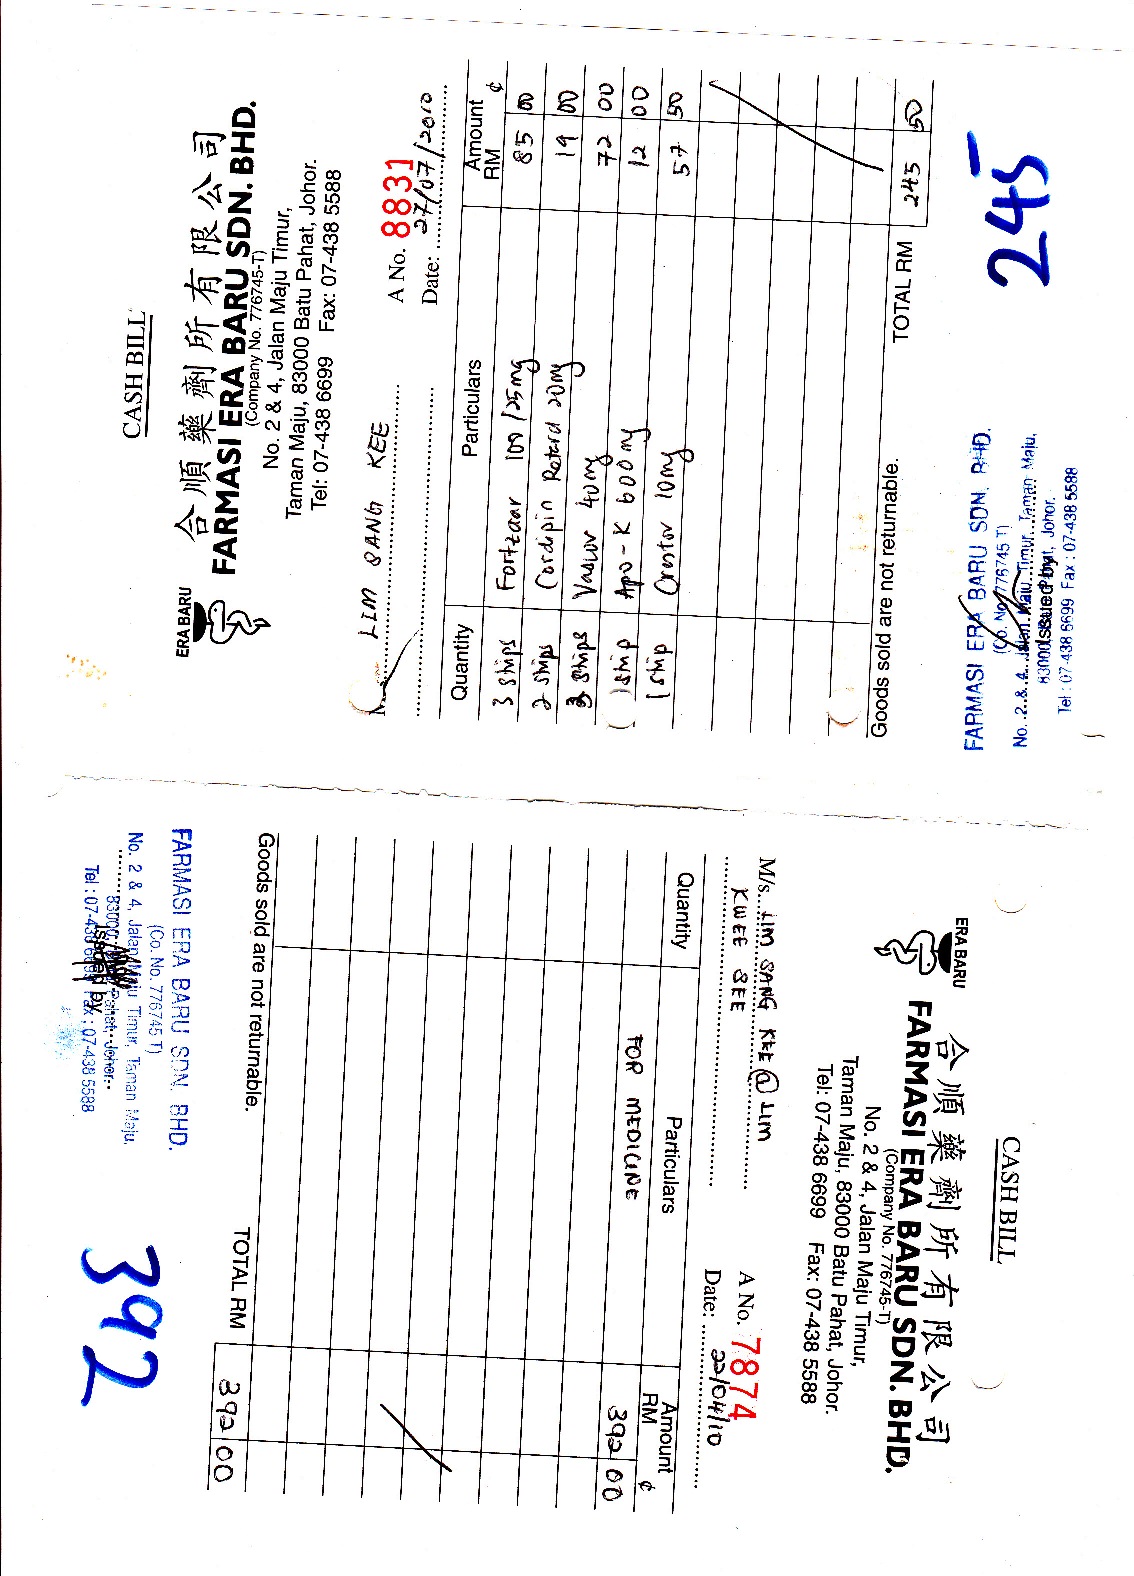 CASH BILL
ERA BARU
合順藥劑所有限公司
FARMASI ERA BARU SDN. BHD.
(Company No. 776745-T)
No. 2 & 4, Jalan Maju Timur,
Taman Maju, 83000 Batu Pahat, Johor.
Tel: 07-438 6699 Fax: 07-438 5588
LIM SANG KEE
A No. 8831
Date: 27/07/2010
Quantity Particulars Amount RM ¢
3 strips Fortzaar 100/25mg 85 00
2 strips Cordipin Retard 20mg 19 00
3 strips Vaslor 40mg 72 00
1 strip Apo-K 600mg 12 00
1 strip Crestor 10mg 57 50
Goods sold are not returnable. TOTAL RM 245 50
FARMASI ERA BARU SDN. BHD.
(Co. No. 776745 T)
No. 2 & 4, Jalan Maju Timur, Taman Maju,
83000 Batu Pahat, Johor.
Issued by
Tel : 07-438 6699 Fax : 07-438 5588
245
CASH BILL
ERA BARU
合順藥劑所有限公司
FARMASI ERA BARU SDN. BHD.
(Company No. 776745-T)
No. 2 & 4, Jalan Maju Timur,
Taman Maju, 83000 Batu Pahat, Johor.
Tel: 07-438 6699 Fax: 07-438 5588
A No. 7874
M/s. LIM SANG KEE @ LIM
KWEE SEE
Date: 22/04/10
Quantity Particulars Amount RM ¢
FOR MEDICINE 392 00
Goods sold are not returnable. TOTAL RM 392 00
FARMASI ERA BARU SDN. BHD.
(Co. No. 776745 T)
No. 2 & 4, Jalan Maju Timur, Taman Maju,
83000 Batu Pahat, Johor.
Issued by
Tel : 07-438 6699 Fax : 07-438 5588
392